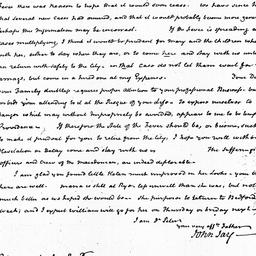 Fever there was reason to hope that it would soon cease. We have since h
that several new Cases had occurred, and that it would probably become more gen
Perhaps this Information may be incorrect. If the Fever is spreading, or
Cases multiplying, I think it would be prudent for Mary and the Children wh
with her, either to stay where they are, or to come here and stay with us unt
can return with safety to the City. in that Case do not let them wait for
carriage, but come in a hired one at my Expense.
our Family doubtless require proper attention to your professional Business but
not bid your attending to it at the Risque of your Life. To expose ourselves to
dangers which may without impropriety be avoided, appears to me to be tempt
Providence. If therefore the State of the Fever should be, or become, such
to make it prudent for you to retire from the City, I hope you will without
Hesitation or Delay come and stay with us. The sufferings
officers and Crew of the Macedonian, are indeed deplorable.
I am glad you found little Helen much improved in her looks - you
here are well. Maria is still at Rye, better than she was, but not
much better as we hoped she would be. She purposes to return to Bedford
week; and I expect William will go for her on Thursday or Friday next
I am Dr. Peter
your very affte. Father
John Jay